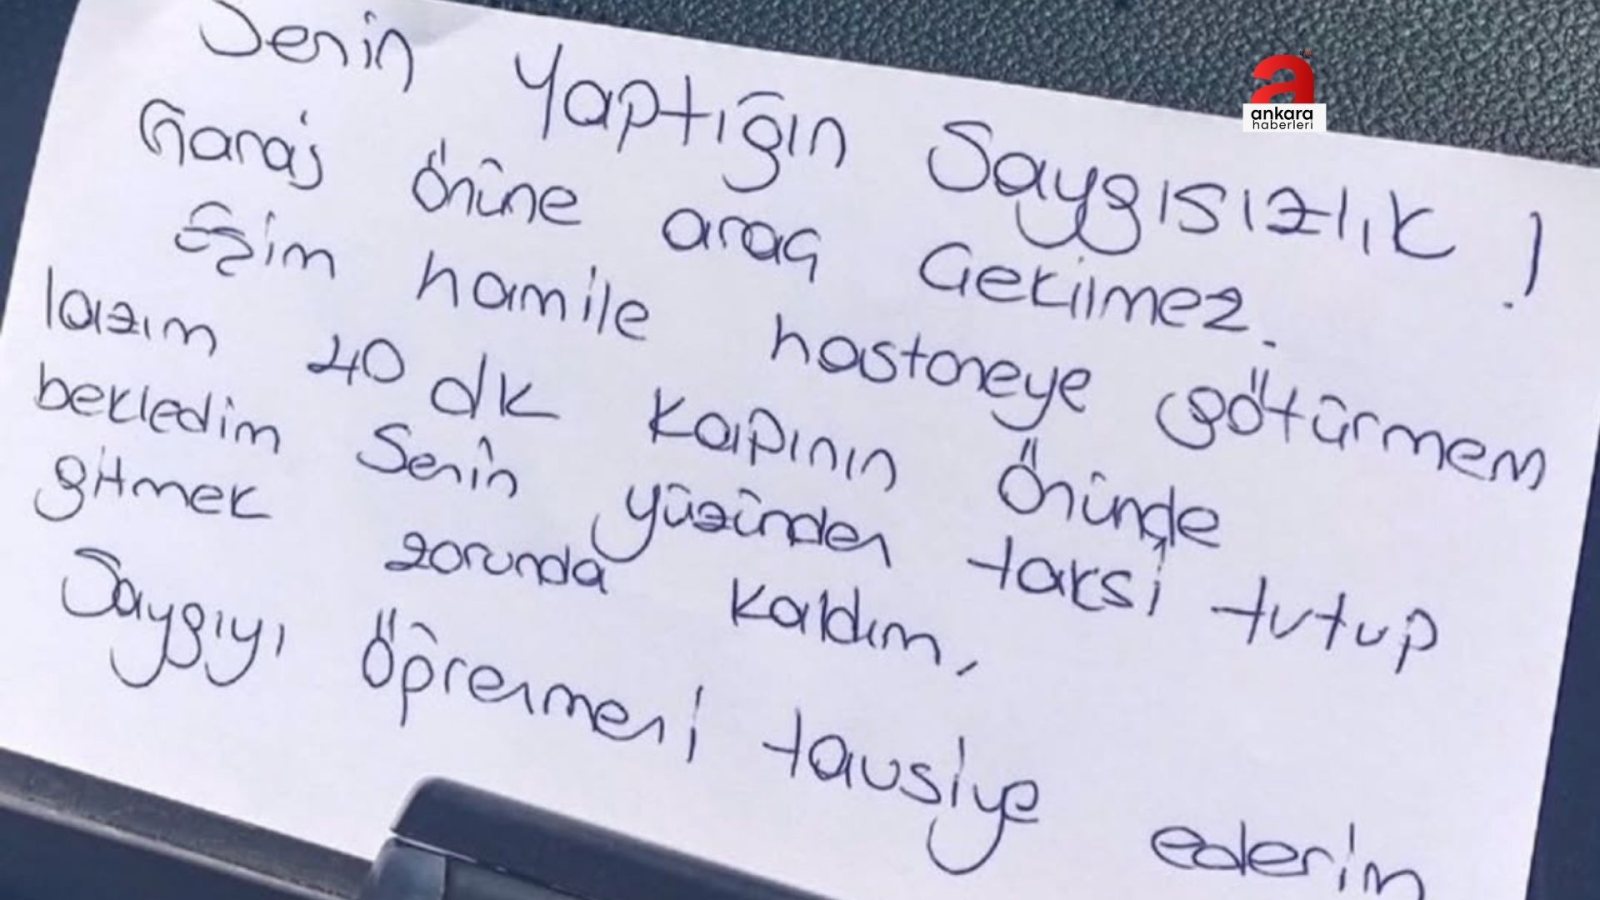 Senin Yaptığın Saygısızlık!
Garaj önüne araç çekilmez.
Eşim hamile hastaneye götürmem
lazım 40 dk kapının önünde
bekledim Senin yüzünden taksi tutup
gitmek zorunda kaldım,
Saygıyı öğrenmeni tavsiye ederim
a
ankara
haberleri